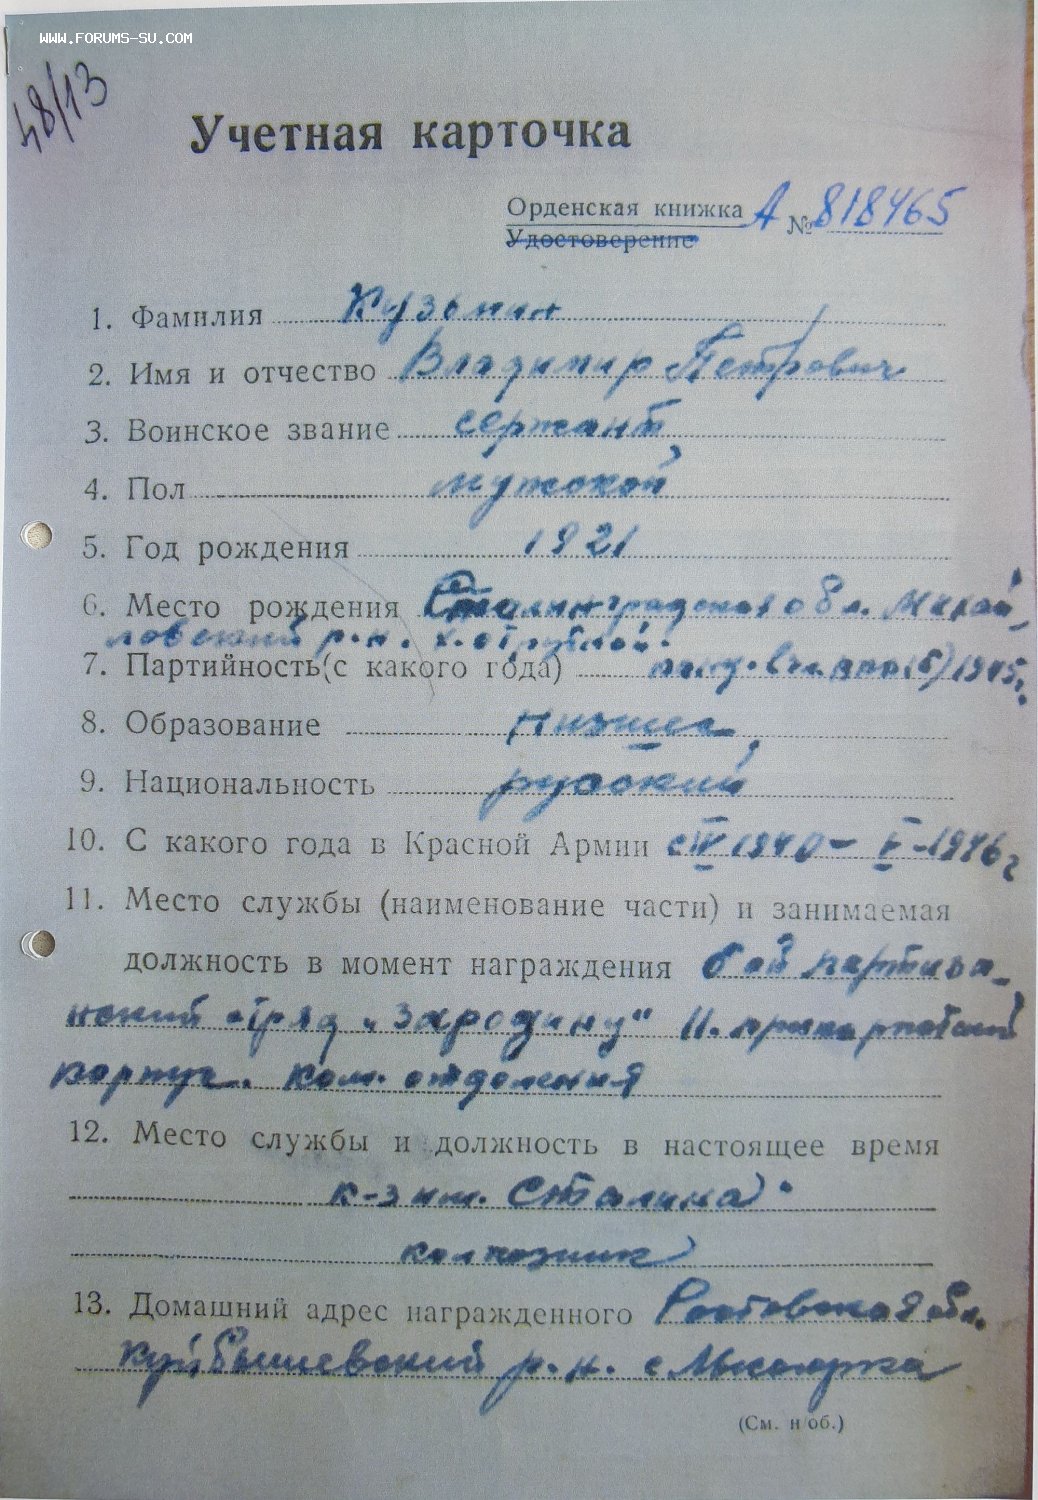 WWW.FORUMS-SU.COM
48/13
Учетная карточка
Орденская книжка А № 818465
Удостоверение
1. Фамилия Кузьмин
2. Имя и отчество Владимир Петрович
3. Воинское звание сержант
4. Пол мужской
5. Год рождения 1921
6. Место рождения Сталинградская обл. Михай
ловский р-н. х. Отрубной.
7. Партийность (с какого года) канд. вкп(б) 1945г.
8. Образование низшее
9. Национальность русский
10. С какого года в Красной Армии с IV 1940 – V-1946 г
11. Место службы (наименование части) и занимаемая
должность в момент награждения 6ой партиза-
нский отряд „За родину"
ком. отделения
12. Место службы и должность в настоящее время
к-з им. Сталина
колхозник
13. Домашний адрес награжденного Ростовская обл.
Куйбышевский р-н. с
(См. н/об.)